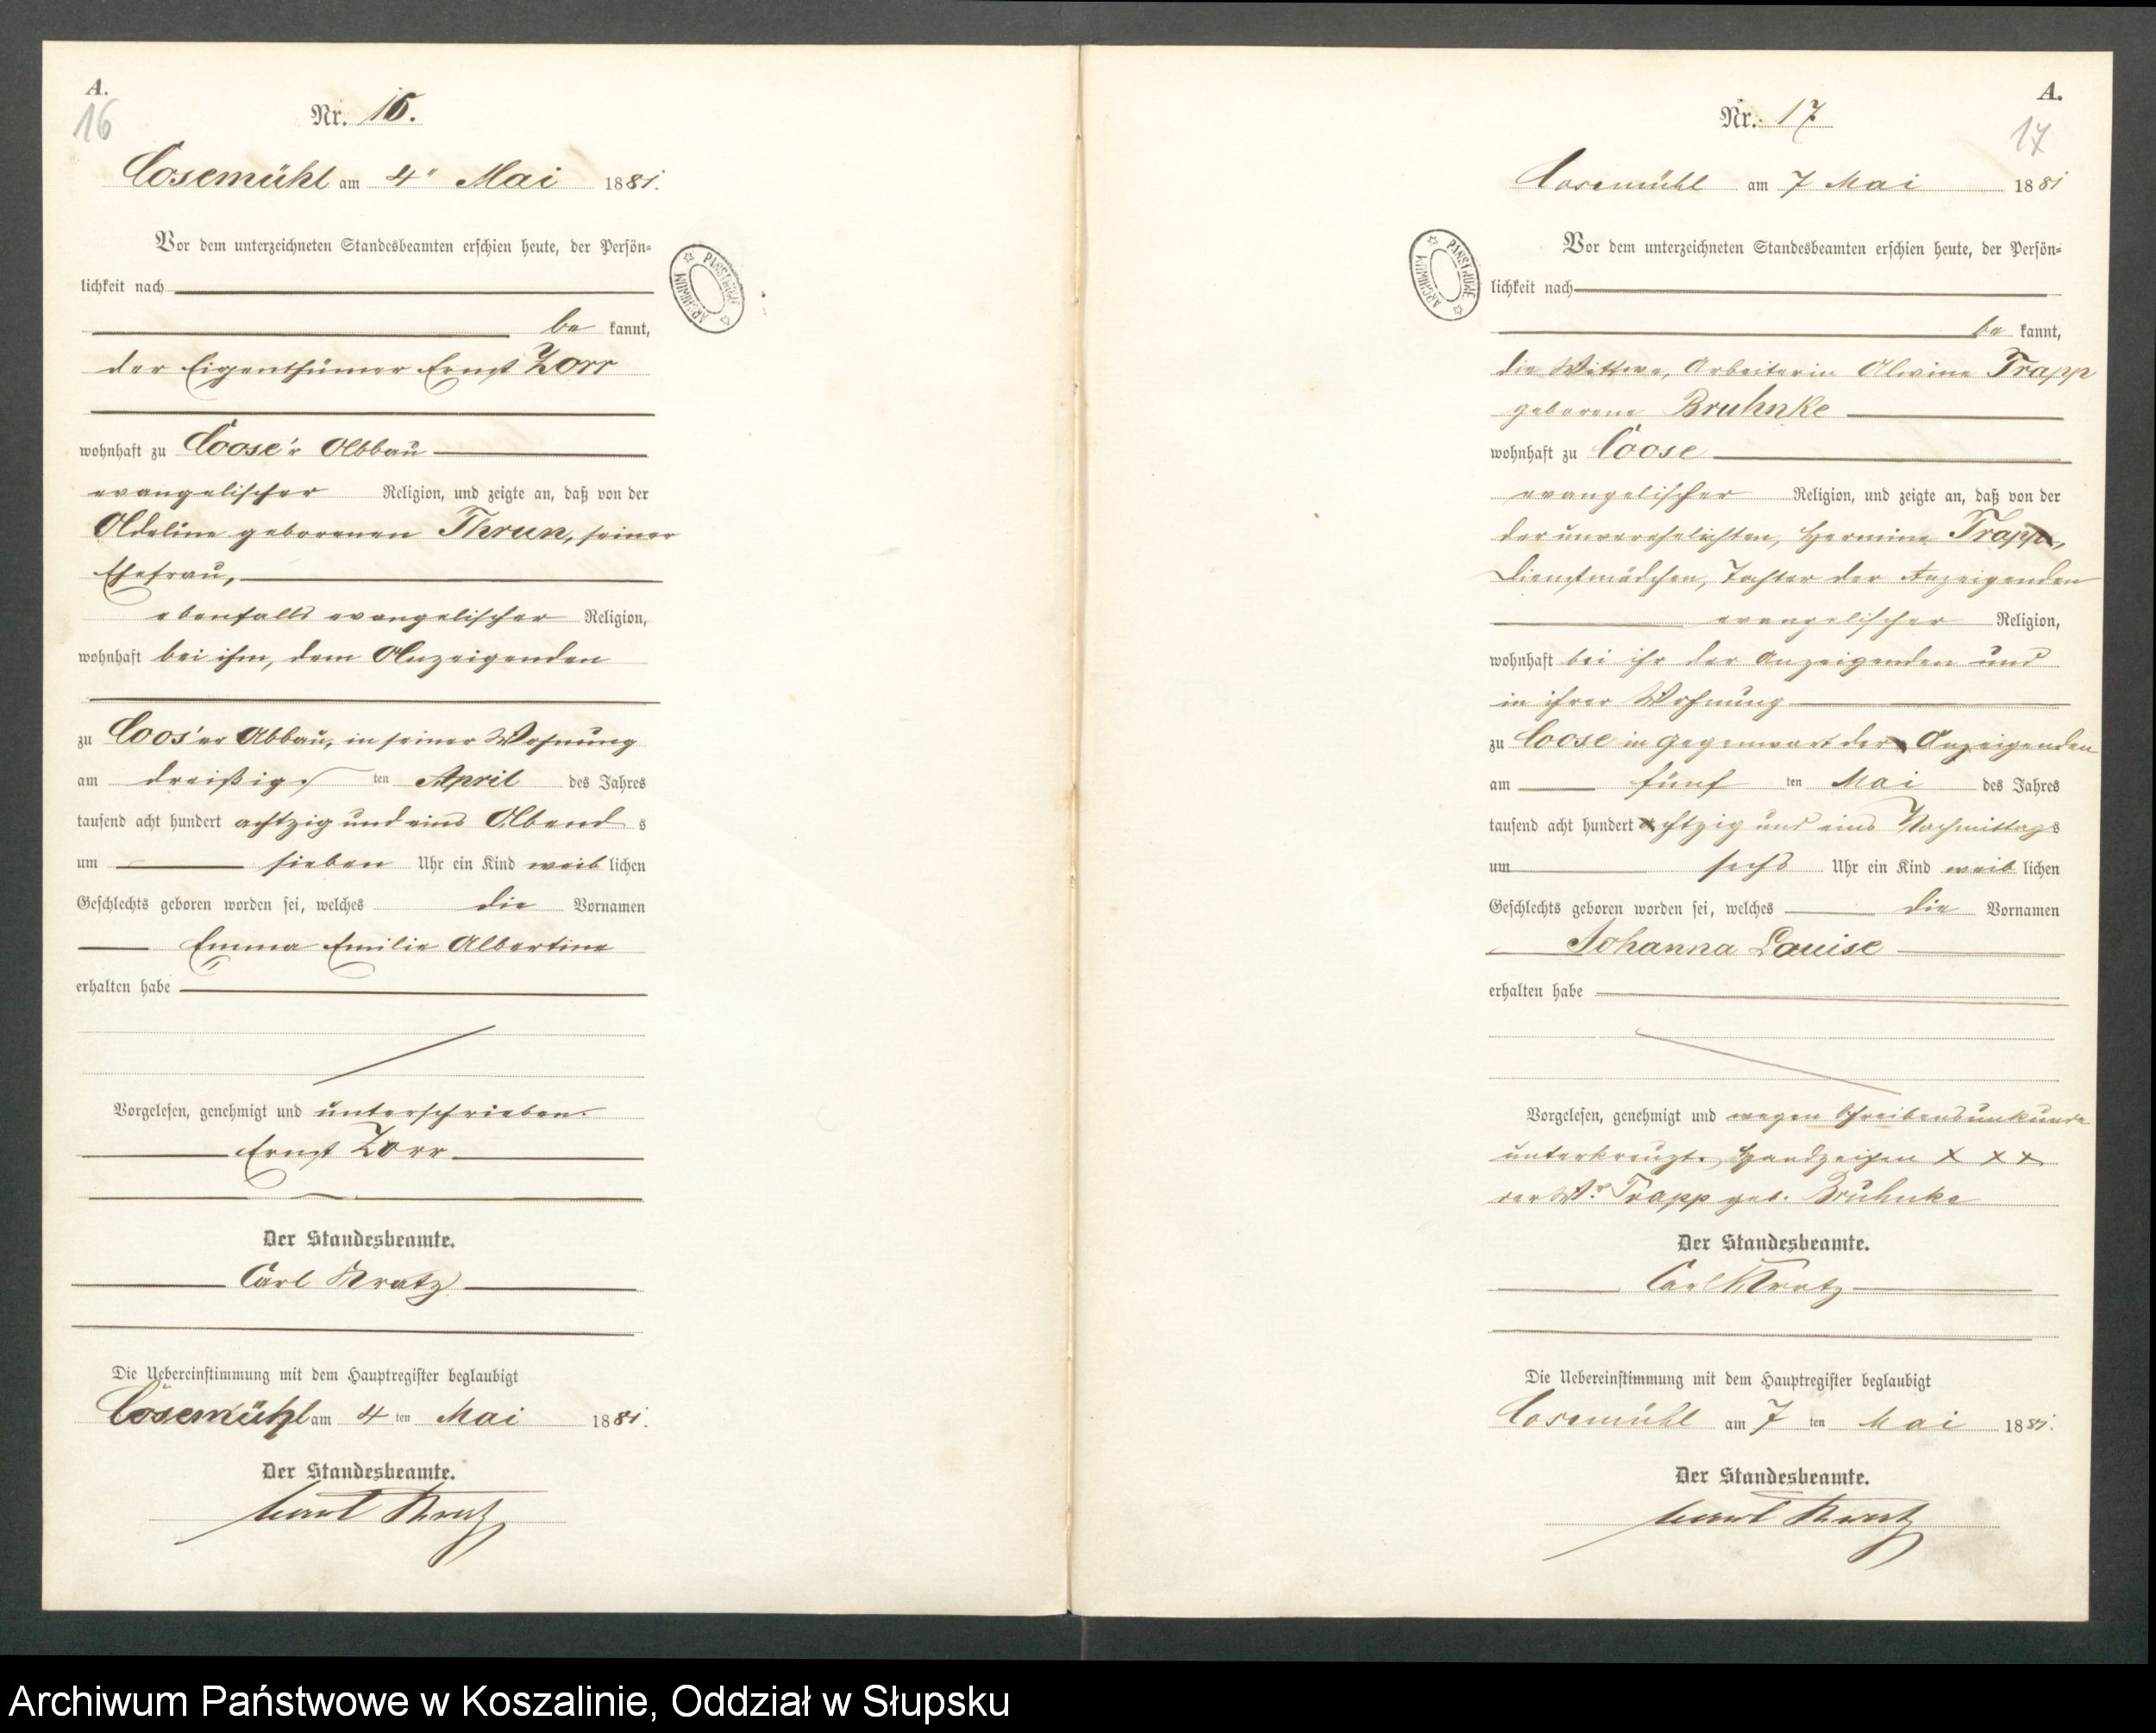 A.
16
Nr. 16.
Cosemühl am 4" Mai 1881.
Vor dem unterzeichneten Standesbeamten erschien heute, der Persön-
lichkeit nach
be kannt,
der Eigenthümer Ernst Zorr
wohnhaft zu Coose'r Abbau
evangelischer Religion, und zeigte an, daß von der
Adeline geborenen Thrun, seiner
Ehefrau,
ebenfalls evangelischer Religion,
wohnhaft bei ihm, dem Anzeigenden
zu Coos'er Abbau, in seiner Wohnung
am dreißigs ten April des Jahres
tausend acht hundert achtzig und eins Abend s
um sieben Uhr ein Kind weib lichen
Geschlechts geboren worden sei, welches die Vornamen
Emma Emilie Albertine
erhalten habe
Vorgelesen, genehmigt und unterschrieben.
Ernst Zorr
Der Standesbeamte.
Carl Kratz
Die Uebereinstimmung mit dem Hauptregister beglaubigt
Cosemühl am 4 ten Mai 1881.
Der Standesbeamte.
Carl Kratz
ARCHIWUM PAŃSTWOWE
A.
17
Nr. 17
Cosemühl am 7 Mai 1881
Vor dem unterzeichneten Standesbeamten erschien heute, der Persön-
lichkeit nach
be kannt,
die Wittwe, Arbeiterin Alwine Trapp
geborene Bruhnke
wohnhaft zu Coose
evangelischer Religion, und zeigte an, daß von der
der unverehelichten, Hermine Trapp,
Dienstmädchen, Tochter der Anzeigenden
evangelischer Religion,
wohnhaft bei ihr der Anzeigenden und
in ihrer Wohnung
zu Coose in Gegenwart der Anzeigenden
am fünf ten Mai des Jahres
tausend acht hundert achtzig und eins Nachmittags
um sechs Uhr ein Kind weib lichen
Geschlechts geboren worden sei, welches die Vornamen
Johanna Louise
erhalten habe
Vorgelesen, genehmigt und wegen Schreibensunkunde
unterkreuzt. Handzeichen X X X
der Ww. Trapp geb. Bruhnke
Der Standesbeamte.
Carl Kratz
Die Uebereinstimmung mit dem Hauptregister beglaubigt
Cosemühl am 7 ten Mai 1881.
Der Standesbeamte.
Carl Kratz
ARCHIWUM PAŃSTWOWE
Archiwum Państwowe w Koszalinie, Oddział w Słupsku